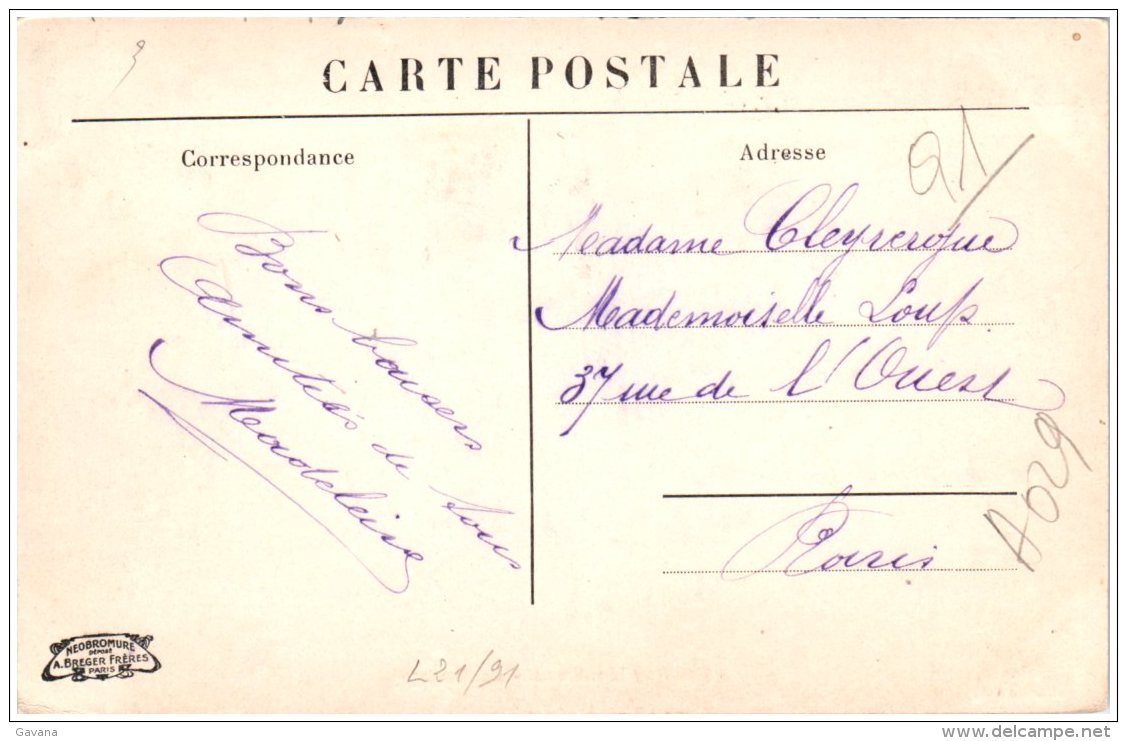 CARTE POSTALE
Correspondance
Adresse
91
Bons baisers
amitiés de tous
Madeleine
Madame Cleyrergue
Mademoiselle Loup
37 rue de l'Ouest
Paris
A029
NEOBROMURE
DÉPOSÉ
A. BREGER FRÈRES
PARIS
L21/91
Gavana
delcampe.net